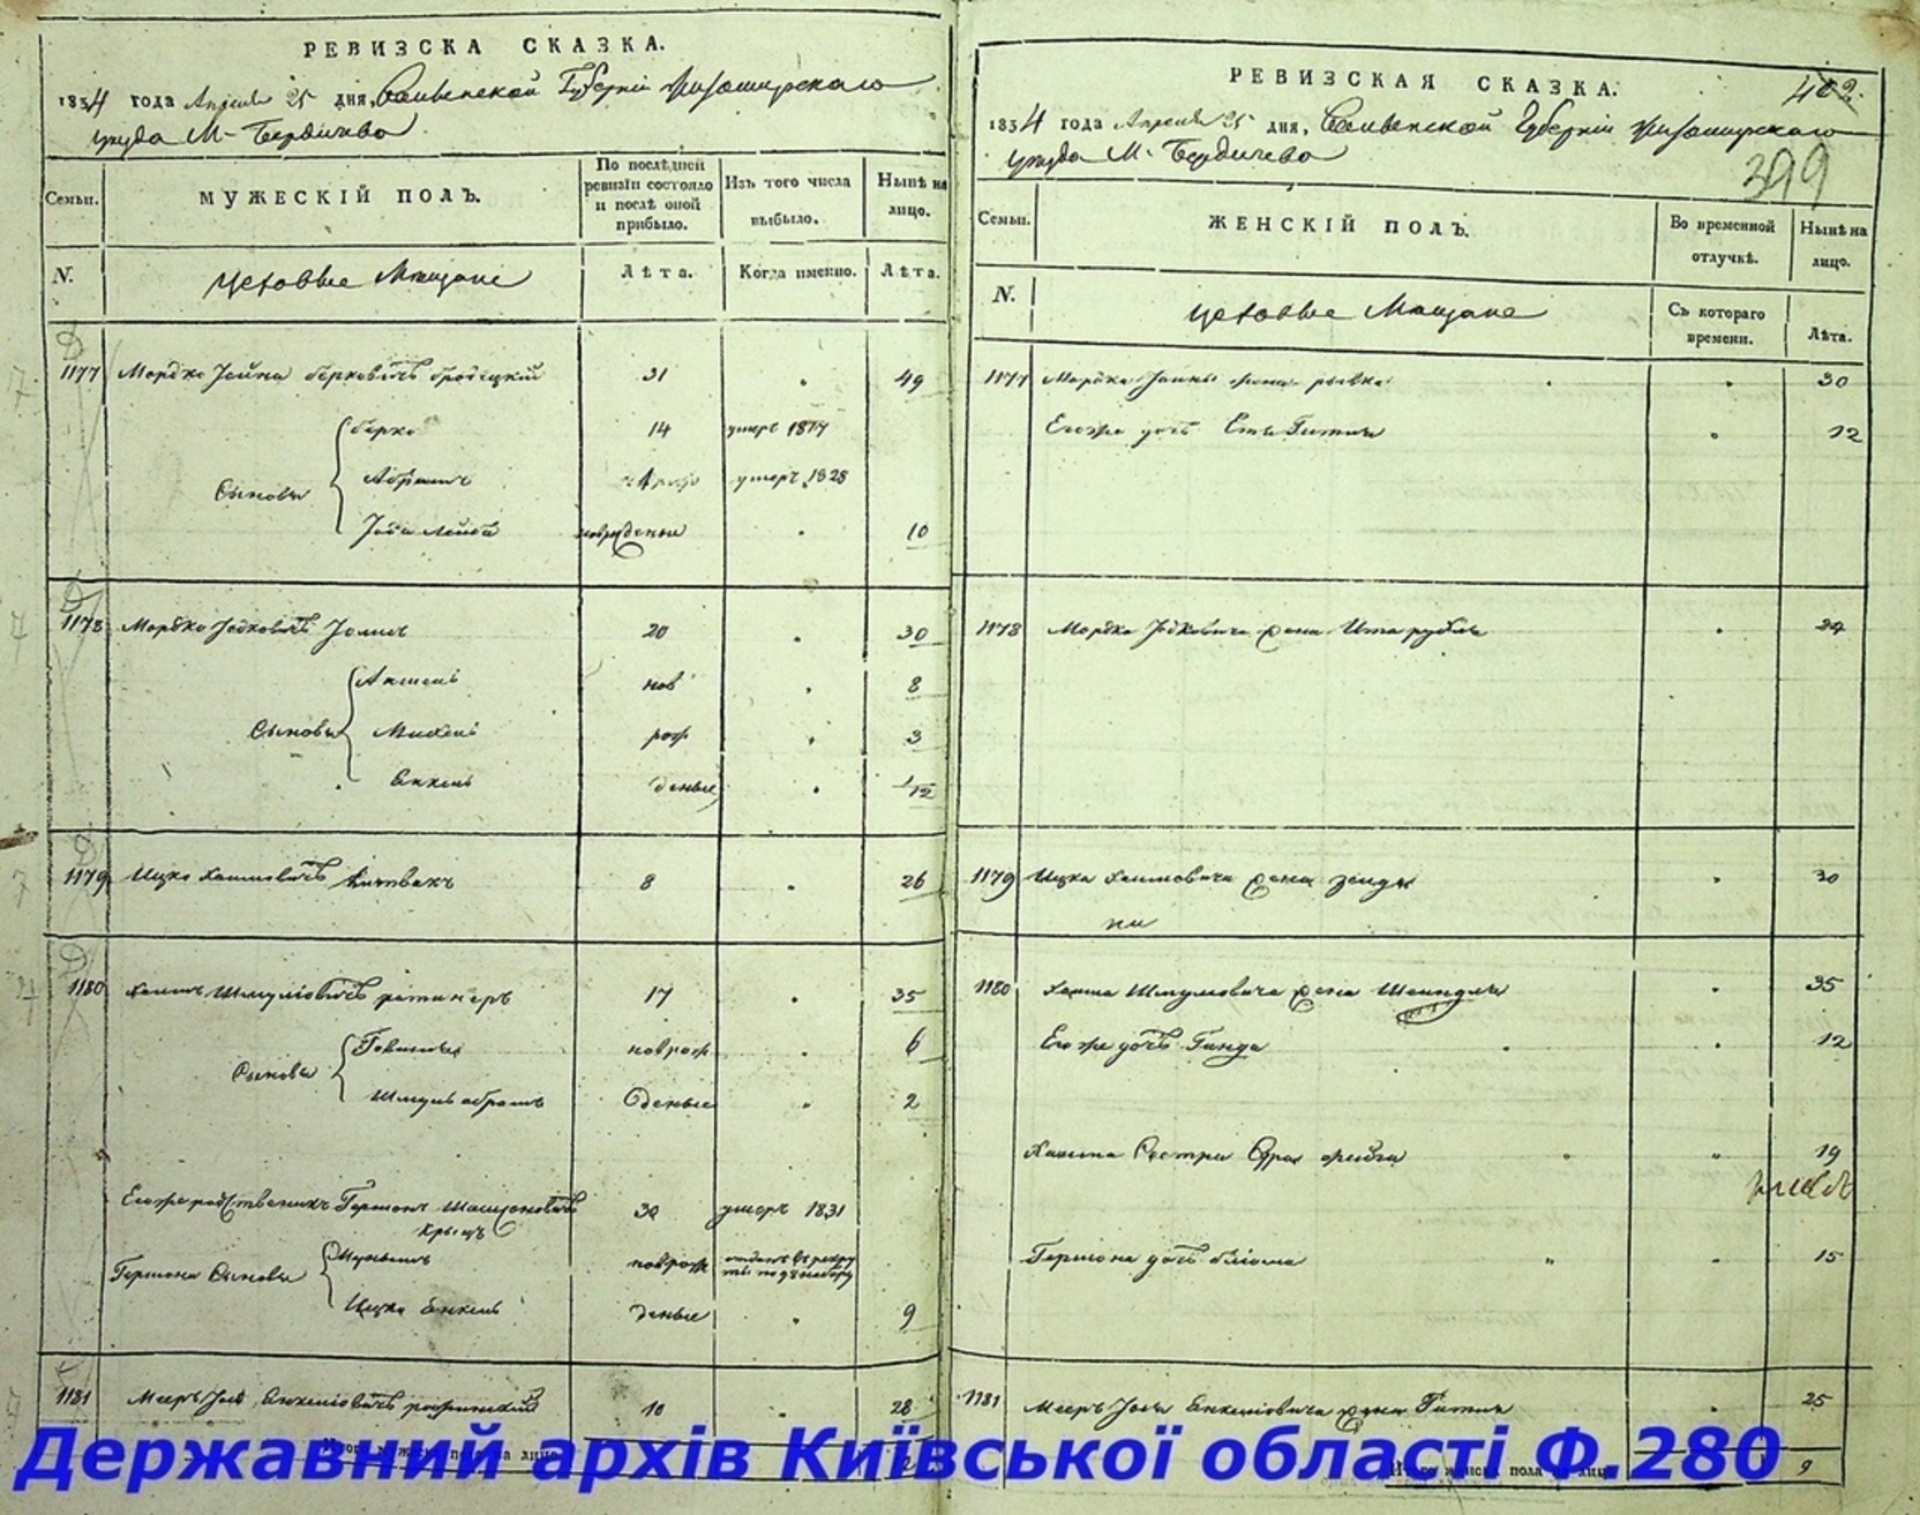 РЕВИЗСКА СКАЗКА.
1834 года Апреля 25 дня, Волынской Губерніи Житомирскаго
уезда М- Бердичева
Семьи.
МУЖЕСКІЙ ПОЛЪ.
По послѣдней ревизіи состояло и послѣ оной прибыло.
Изъ того числа выбыло.
Нынѣ на лицо.
N.
Цеховые Мещане
Лѣта.
Когда именно.
Лѣта.
1177 Мордко Іойна Берковичъ Бродецкій 31 49
Берко 14 умеръ
Сыновья Абрамъ умеръ 1828
Іось Лейба новрожденые 10
1178 Мордко Іосковичъ 20 30
нов 8
Сыновья рож 3
Енкель деные 1/12
1179 Ицко Хаимовичъ 8 26
1180 Хаимъ Шмулiовичъ 17 35
новрож 6
Сыновья Шмуль Абрамъ деные 2
Егоже родственикъ Гершонъ 30 умеръ 1831
Гершона Сыновья новрож отданъ въ рекруты по
Ицко Енкель деные 9
1181 Мееръ Іось Енкелiовичъ 10 28
РЕВИЗСКАЯ СКАЗКА.
402.
1834 года Апреля 25 дня, Волынской Губерніи Житомирскаго
уезда М- Бердичева
399
Семьи.
ЖЕНСКІЙ ПОЛЪ.
Во временной отлучкѣ.
Нынѣ на лицо.
N.
Цеховые Мещане
Съ котораго времени.
Лѣта.
1177 Мордка Іойны жена Рывка 30
Егоже дочь Гитля 12
1178 Мордка Іосковича жена 24
1179 Ицка Хаимовича жена 30
1180 Хаима Шмулiовича жена Шейндля 35
Егоже дочь Гинда 12
Хаима Сестра 19
Гершона дочь 15
1181 Меера Іося Енкелiовича жена Гитля 25
Итого женска пола на лицо 9
Державний архів Київської області Ф.280